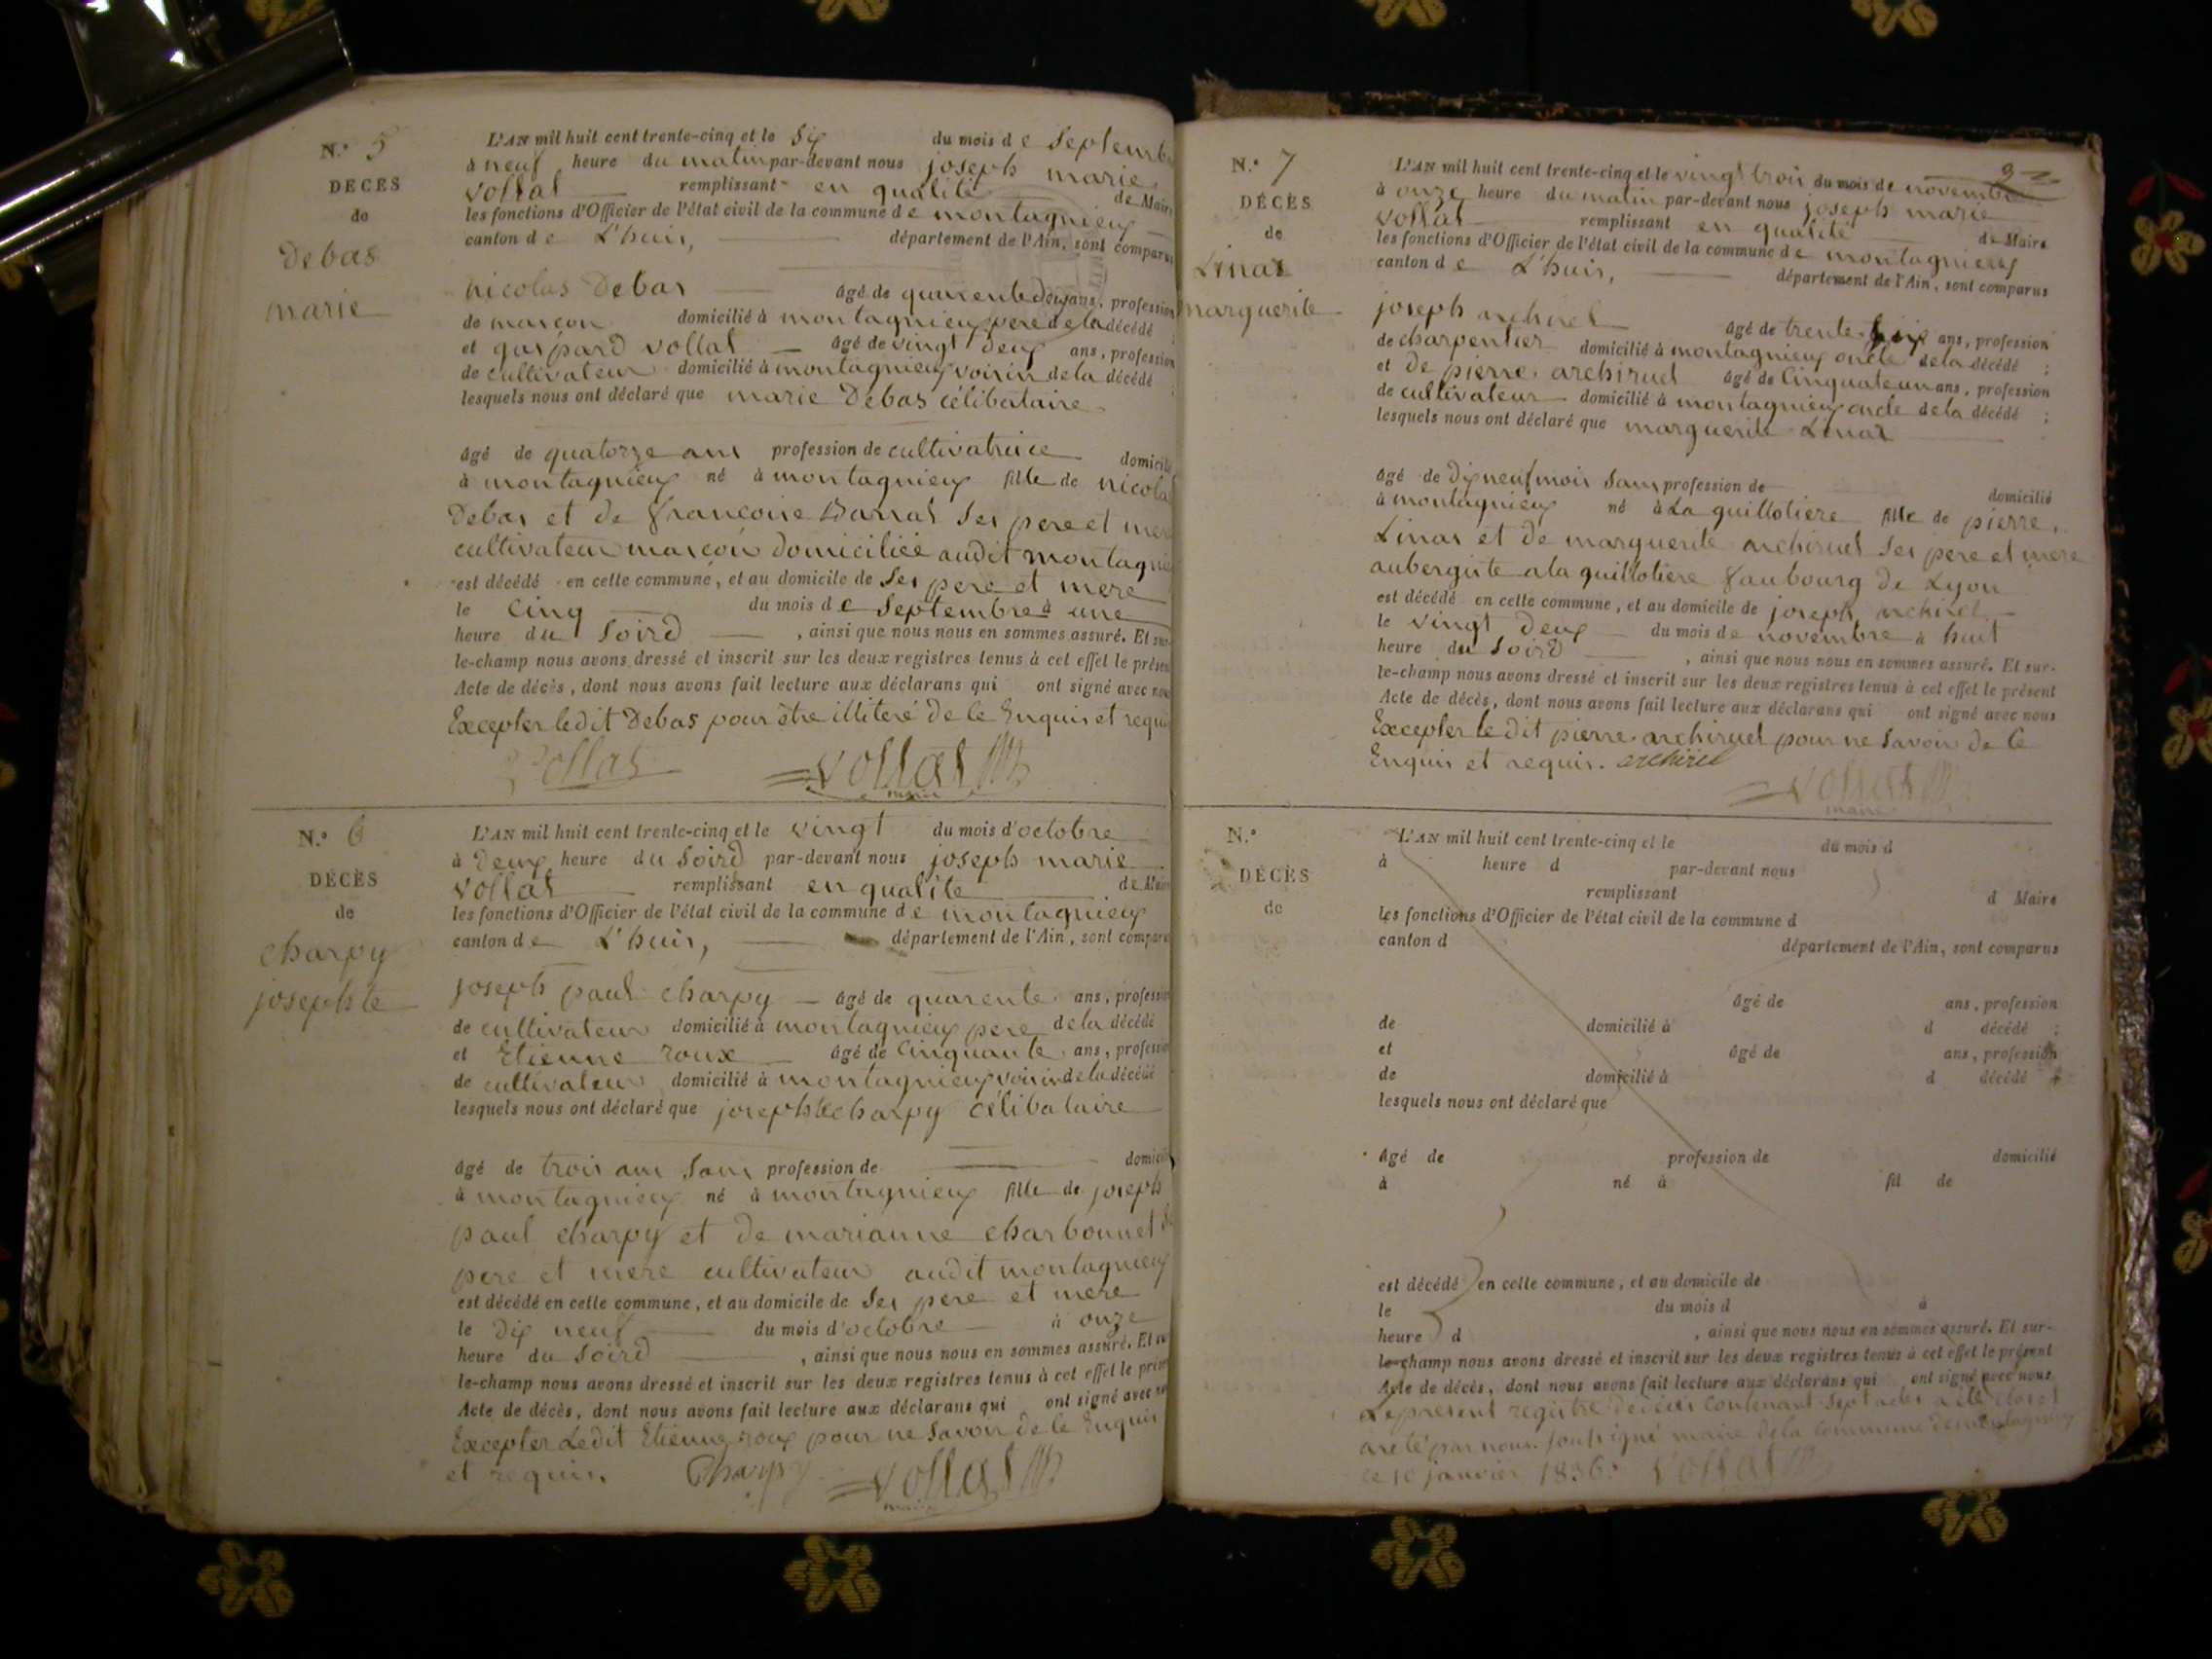 N.° 5
DECES
de
Debas
marie
L'AN mil huit cent trente-cinq et le six du mois de Septemb
à neuf heure du matin par-devant nous joseph marie
vollat remplissant en qualité de Maire
les fonctions d'Officier de l'état civil de la commune de montagnieux
canton de L'huis, département de l'Ain, sont comparus
nicolas Debas âgé de quarente deux ans, profession
de mascon domicilié à montagnieux pere de la décédé
et gaspard vollat âgé de vingt deux ans, profession
de cultivateur domicilié à montagnieux voisin de la décédé
lesquels nous ont déclaré que marie Debas célibataire
âgé de quatorze ans profession de cultivatrice domicilié
à montagnieux né à montagnieux fille de nicolas
Debas et de francoise Barrat ses pere et mere
cultivateur mascon domiciliée audit montagni
est décédé en cette commune, et au domicile de ses pere et mere
le cinq du mois de Septembre à une
heure du soird, ainsi que nous nous en sommes assuré. Et sur-
le-champ nous avons dressé et inscrit sur les deux registres tenus à cet effet le présent
Acte de décès, dont nous avons fait lecture aux déclarans qui ont signé avec nous
Excepter ledit Debas pour être illiteré de le Enquis et requis
Vollat vollat
maire
N.° 6
DÉCÈS
de
charpy
josephte
L'AN mil huit cent trente-cinq et le vingt du mois d'octobre
à Deux heure du Soird par-devant nous joseph marie
vollat remplissant en qualité de Maire
les fonctions d'Officier de l'état civil de la commune de montagnieux
canton de L'huis, département de l'Ain, sont comparus
joseph paul charpy âgé de quarente ans, profession
de cultivateur domicilié à montagnieux pere de la décédé
et Etienne roux âgé de Cinquante ans, profession
de cultivateur domicilié à montagnieux voisin de la décédé
lesquels nous ont déclaré que josephte charpy célibataire
âgé de trois ans sans profession de domicilié
à montagnieux né à montagnieux fille de joseph
paul charpy et de marianne charbonnet
pere et mere cultivateur audit montagnieux
est décédé en cette commune, et au domicile de ses pere et mere
le dix neuf du mois d'octobre à onze
heure du Soird, ainsi que nous nous en sommes assuré. Et sur
le-champ nous avons dressé et inscrit sur les deux registres tenus à cet effet le présent
Acte de décès, dont nous avons fait lecture aux déclarans qui ont signé avec nous
Excepter Ledit Etienne roux pour ne Savoir de le Enquis
et requis. Charpy vollat
maire
N.° 7
DÉCÈS
de
Linas
marguerite
L'AN mil huit cent trente-cinq et le vingt trois du mois de novembre
à onze heure du matin par-devant nous joseph marie
vollat remplissant en qualité de Maire
les fonctions d'Officier de l'état civil de la commune de montagnieux
canton de L'huis, département de l'Ain, sont comparus
joseph archirel âgé de trente ans, profession
de charpentier domicilié à montagnieux oncle de la décédé ;
et de pierre archiruel âgé de Cinquate un ans, profession
de cultivateur domicilié à montagnieux oncle de la décédé ;
lesquels nous ont déclaré que marguerite Linas
âgé de dix neuf mois Sans profession de domicilié
à montagnieux né à La quillotiere fille de pierre
Linas et de marguerite archiruel ses pere et mere
aubergiste a la quillotiere faubourg de Lyon
est décédé en cette commune, et au domicile de joseph archirel
le vingt deux du mois de novembre à huit
heure du Soird, ainsi que nous nous en sommes assuré. Et sur-
le-champ nous avons dressé et inscrit sur les deux registres tenus à cet effet le présent
Acte de décès, dont nous avons fait lecture aux déclarans qui ont signé avec nous
Excepter le dit pierre archiruel pour ne Savoir de le
Enquis et requis. archirel
vollat
maire
N.°
DÉCÈS
de
L'AN mil huit cent trente-cinq et le du mois d
à heure d par-devant nous
remplissant d Maire
les fonctions d'Officier de l'état civil de la commune d
canton d département de l'Ain, sont comparus
âgé de ans, profession
de domicilié à d décédé ;
et âgé de ans, profession
de domicilié à d décédé
lesquels nous ont déclaré que
âgé de profession de domicilié
à né à fil de
est décédé en cette commune, et au domicile de
le du mois d à
heure d, ainsi que nous nous en sommes assuré. Et sur-
le-champ nous avons dressé et inscrit sur les deux registres tenus à cet effet le présent
Acte de décès, dont nous avons fait lecture aux déclarans qui ont signé avec nous
Le present registre de deces contenant Sept actes a été clos et
areté par nous soussigné maire de la commune de montagnieux
ce 10 janvier 1836. vollat